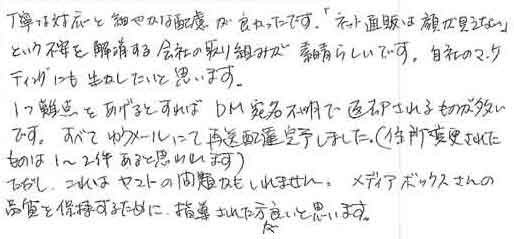 丁寧な対応と細やかな配慮が良かったです。「ネット通販は顔が見えない」
という不安を解消する会社の取り組みが素晴らしいです。自社のマーケ
ティングにも生かしたいと思います。
1つ難点をあげるとすればDM宛名不明で返却されるものが多い
です。すべてゆうメールにて再送配達完了しました。(住所変更された
ものは1〜2件あると思われます)
ただし、これはヤマトの問題かもしれません。メディアボックスさんの
品質を保持するために、指導された方良いと思います。
が